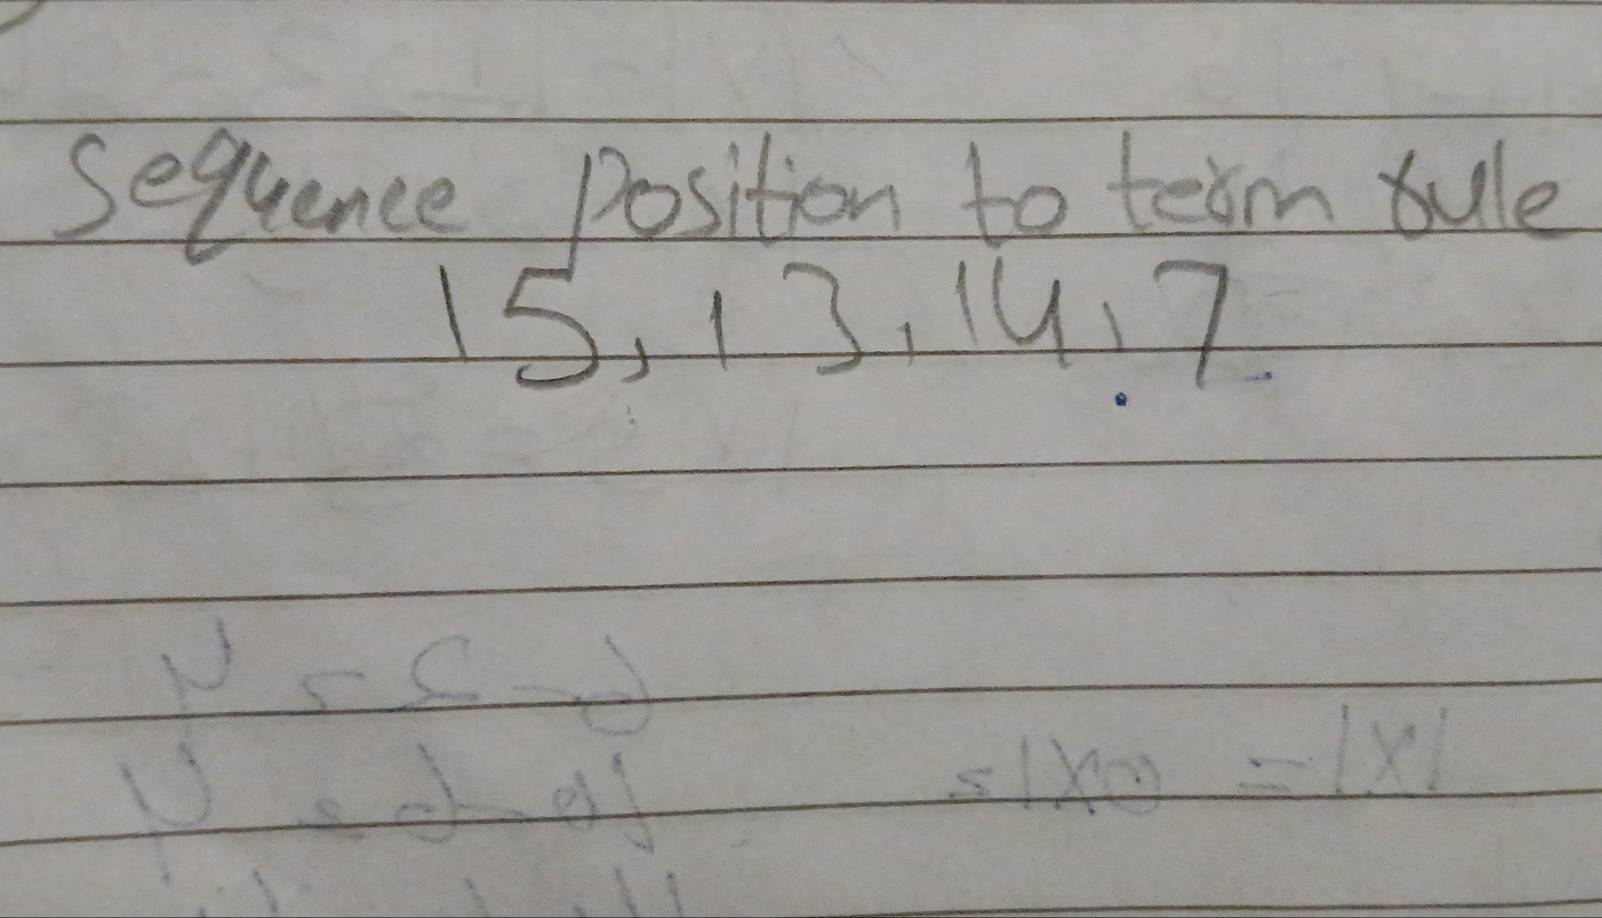 Sequence Position to term rule
15, 13, 14, 7